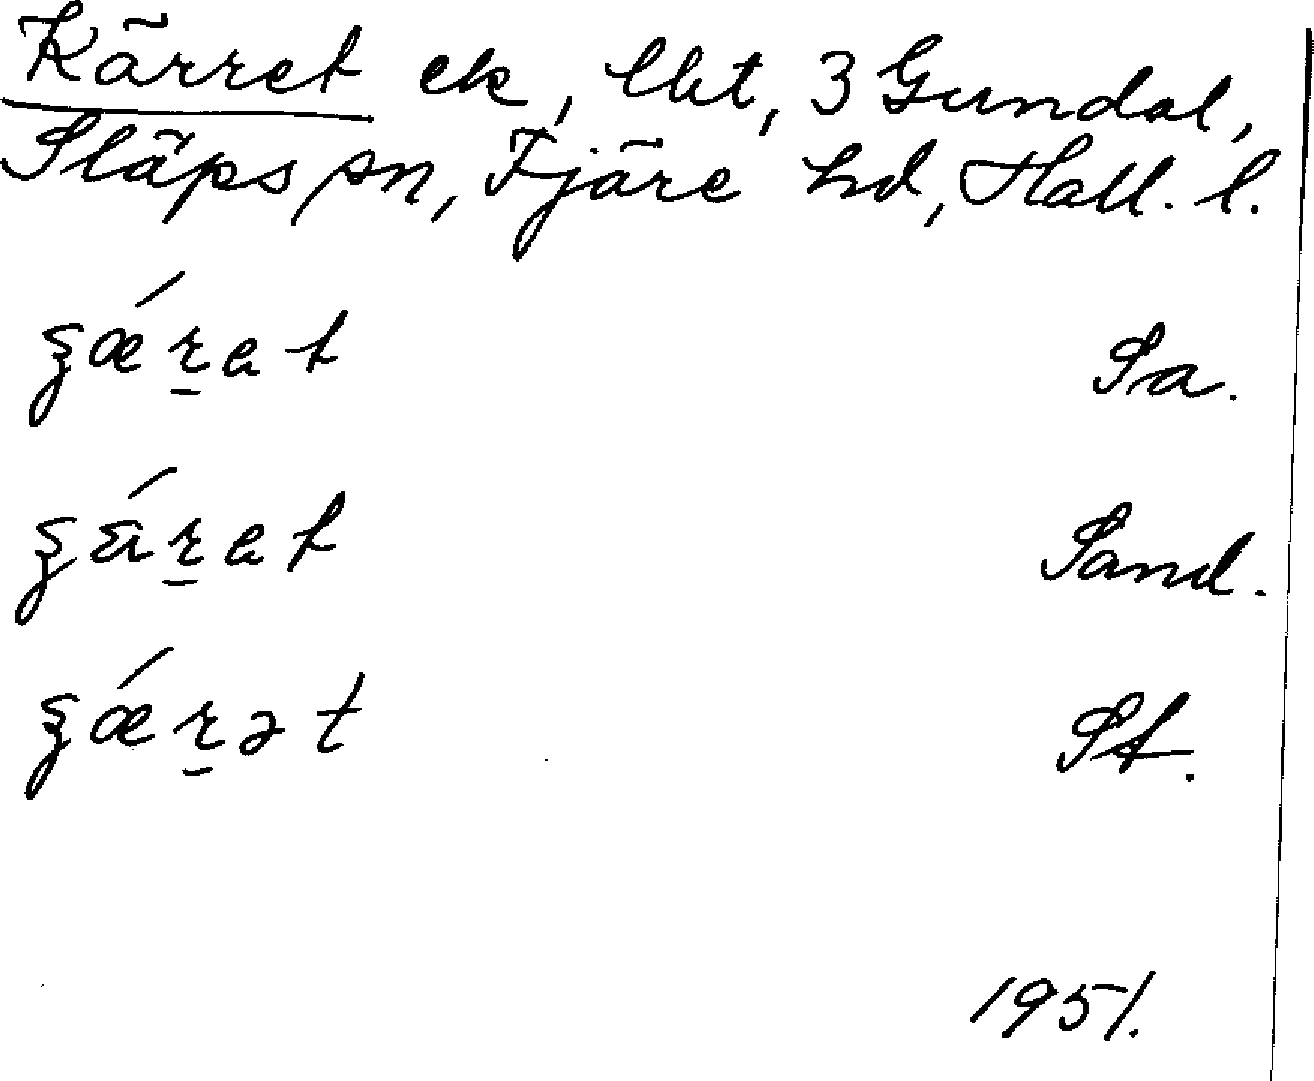 Kärret ek, lht, 3 Gundal,
Släps sn, Fjäre hd, Hall. l.
ʂǽr̠et Sa.
ʂä́r̠et Sand.
ʂǽr̠ət St.
1951.